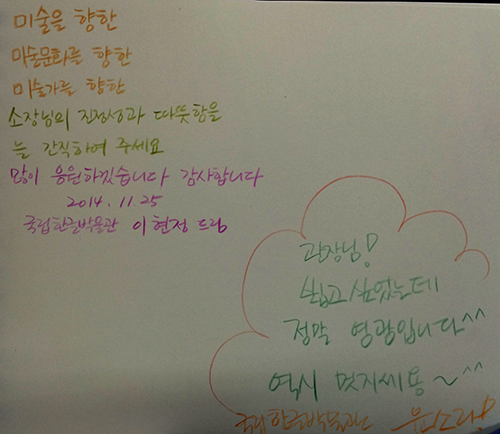 미술을 향한
미술문화를 향한
미술가를 향한
소장님의 진정성과 따뜻함을
늘 간직하여 주세요
많이 응원하겠습니다 감사합니다
2014. 11. 25
국립한글박물관 이현정 드림
관장님!
뵙고 싶었는데
정말 영광입니다^^
역시 멋지세용~^^
국립한글박물관